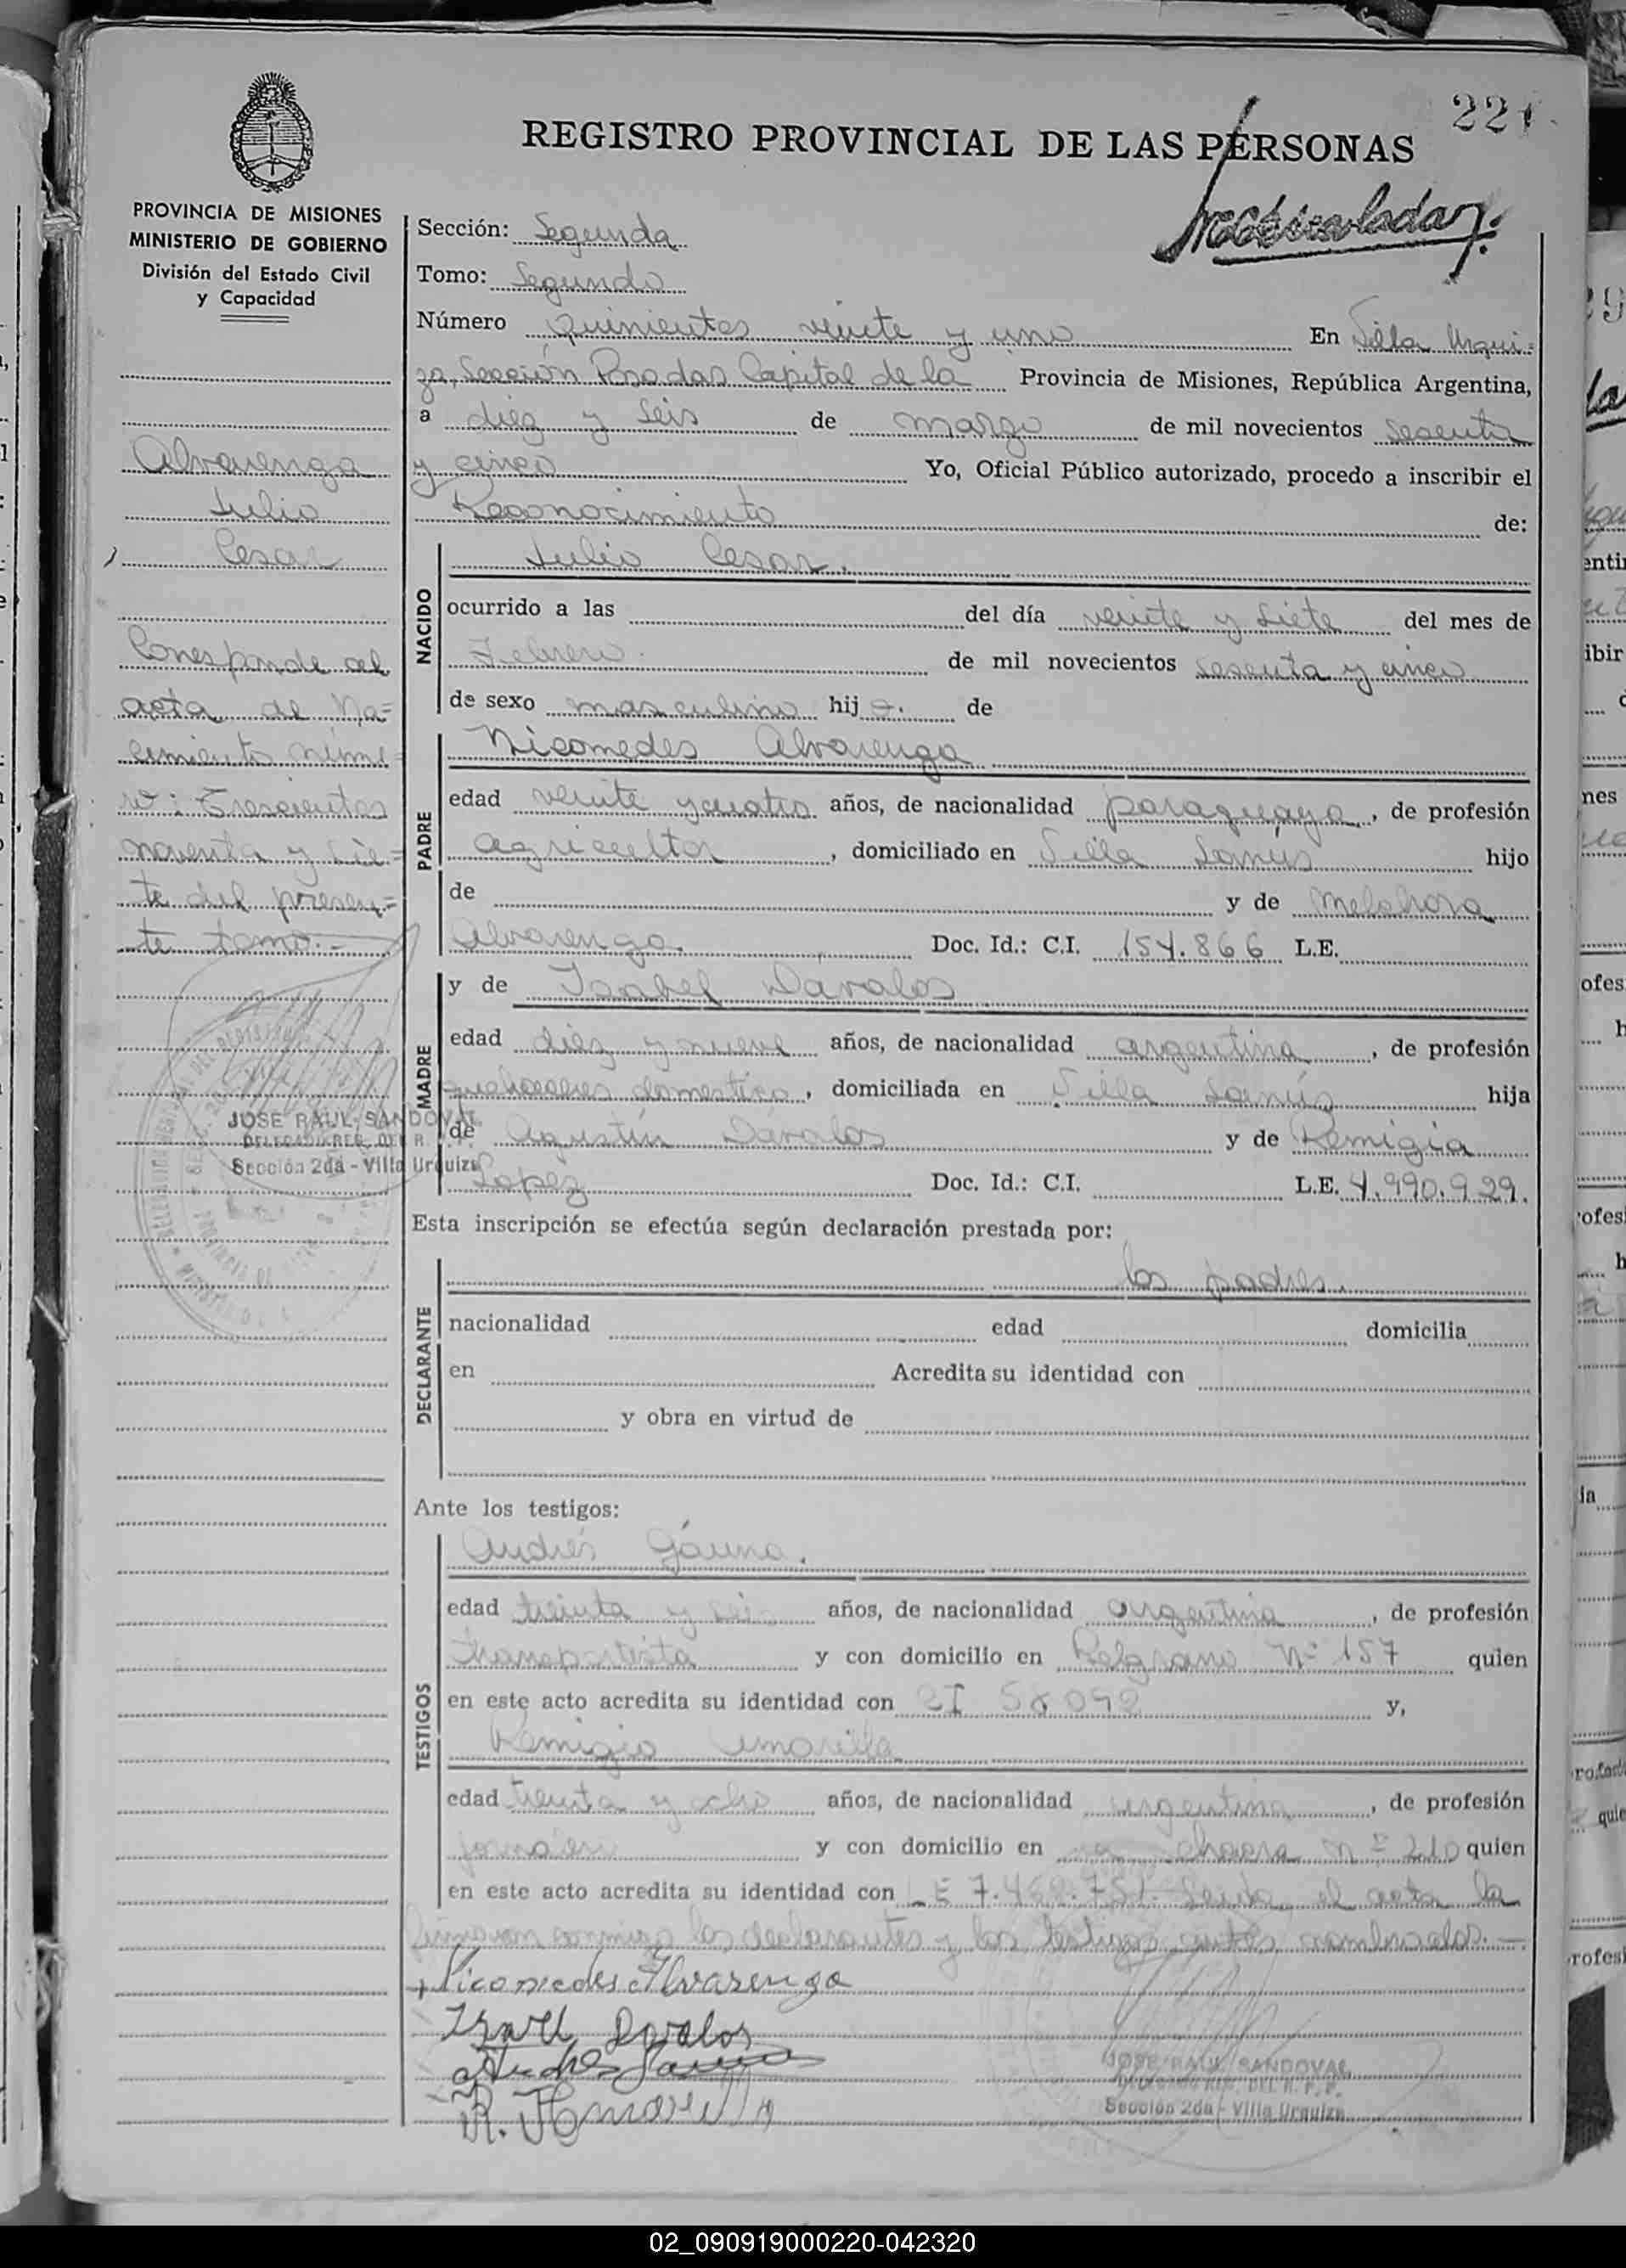 221
REGISTRO PROVINCIAL DE LAS PERSONAS
PROVINCIA DE MISIONES
MINISTERIO DE GOBIERNO
División del Estado Civil
y Capacidad
Alvarenga
Julio
Cesar
Corresponde al
acta de Na=
cimiento núme=
ro: Trescientos
noventa y sie=
te del presen=
te tomo.-
JOSE RAUL SANDOVAL
DELEGADO REG. DEL R. P. P.
Sección 2da - Villa Urquiza
Sección: Segunda
Tomo: Segundo
Número Quinientos veinte y uno En Villa Urqui=
za, Sección Posadas Capital de la Provincia de Misiones, República Argentina,
a diez y seis de marzo de mil novecientos sesenta
y cinco Yo, Oficial Público autorizado, procedo a inscribir el
Reconocimiento de:
NACIDO
Julio Cesar.
ocurrido a las del día veinte y siete del mes de
Febrero. de mil novecientos sesenta y cinco
de sexo masculino hij o. de
PADRE
Nicomedes Alvarenga
edad veinte y cuatro años, de nacionalidad paraguaya, de profesión
agricultor, domiciliado en Villa Lanús hijo
de y de Melchora
Alvarenga. Doc. Id.: C.I. 154.866 L.E.
MADRE
y de Isabel Dávalos
edad diez y nueve años, de nacionalidad argentina, de profesión
quehaceres domestico, domiciliada en Villa Lanús hija
de Agustín Davalos y de Remigia
Lopez Doc. Id.: C.I. L.E. 4.990.929.
Esta inscripción se efectúa según declaración prestada por:
DECLARANTE
los padres.
nacionalidad edad domicilia
en Acredita su identidad con
y obra en virtud de
Ante los testigos:
TESTIGOS
Andrés Gauna.
edad treinta y seis años, de nacionalidad argentina, de profesión
transportista y con domicilio en Belgrano Nº 157 quien
en este acto acredita su identidad con CI 58092 y,
Remigio Amarilla
edad treinta y ocho años, de nacionalidad argentina, de profesión
jornalero y con domicilio en chacra nº 210 quien
en este acto acredita su identidad con LE Leida el acta la
firmaron conmigo los declarantes y los testigos antes nombrados.-
Nicomedes Alvarenga
Isabel Davalos
Andres Gauna
R. Amarilla
JOSE RAUL SANDOVAL
DELEGADO REG. DEL R. P. P.
Sección 2da - Villa Urquiza
02_090919000220-042320